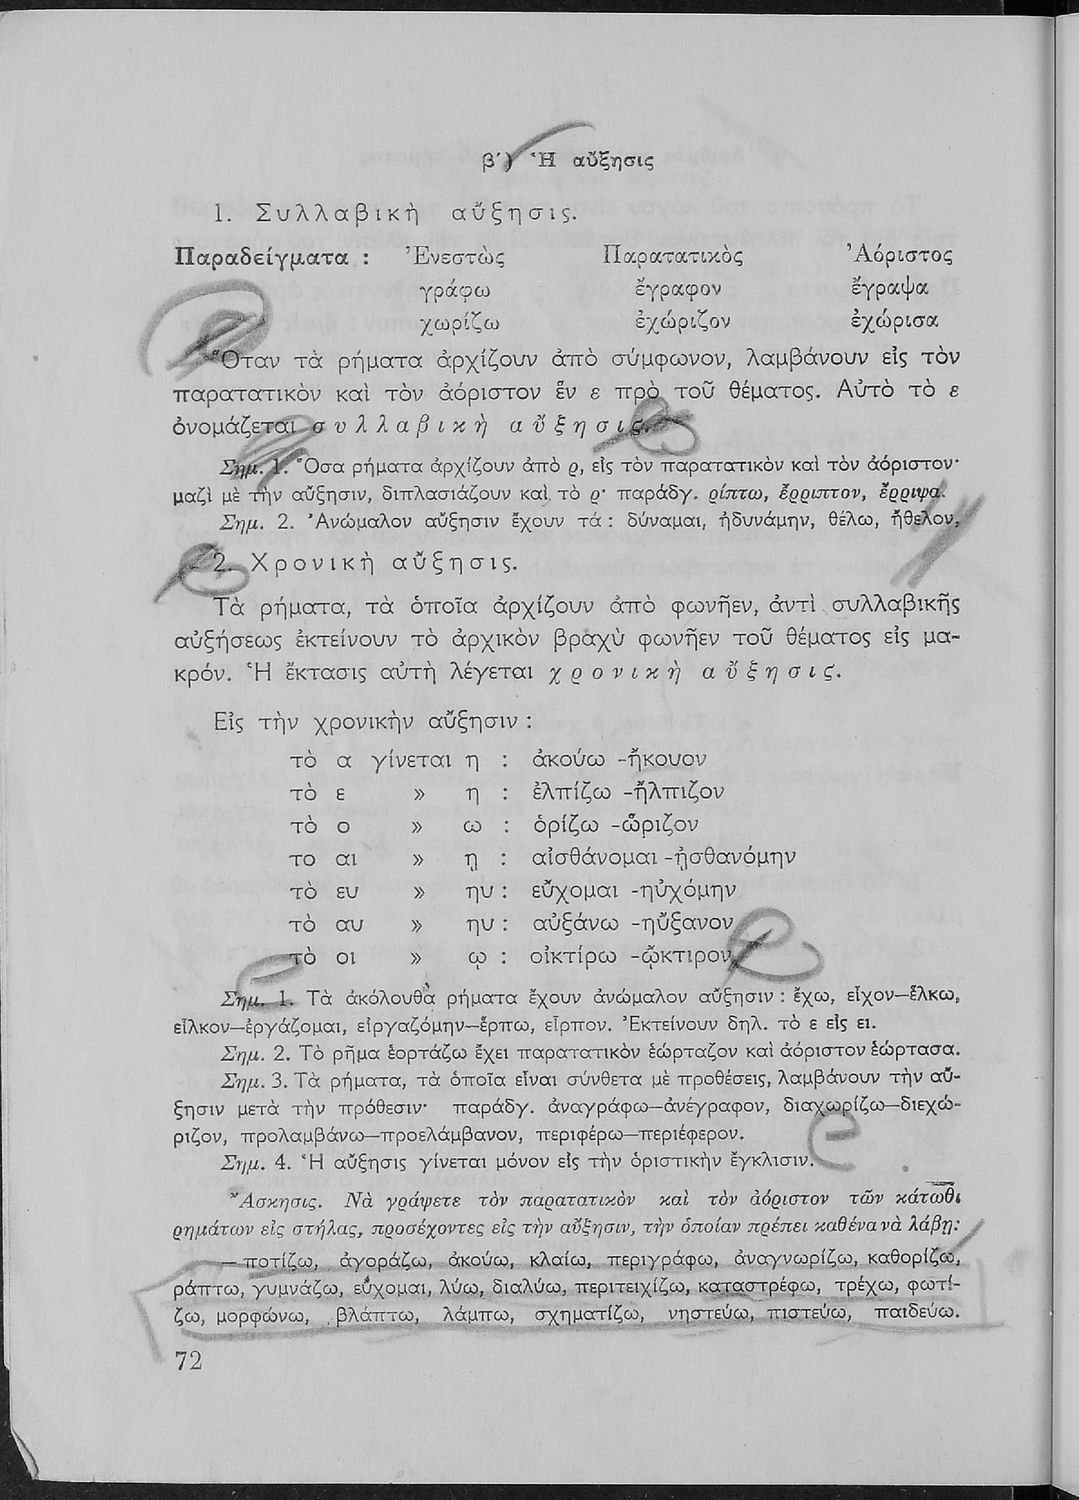 β΄) Ἡ αὔξησις
1. Συλλαβικὴ αὔξησις.
Παραδείγματα : Ἐνεστὼς Παρατατικὸς Ἀόριστος
γράφω ἔγραφον ἔγραψα
χωρίζω ἐχώριζον ἐχώρισα
Ὅταν τὰ ρήματα ἀρχίζουν ἀπὸ σύμφωνον, λαμβάνουν εἰς τὸν
παρατατικὸν καὶ τὸν ἀόριστον ἓν ε πρὸ τοῦ θέματος. Αὐτὸ τὸ ε
ὀνομάζεται συλλαβικὴ αὔξησις.
Σημ. 1. Ὅσα ρήματα ἀρχίζουν ἀπὸ ρ, εἰς τὸν παρατατικὸν καὶ τὸν ἀόριστον·
μαζὶ μὲ τὴν αὔξησιν, διπλασιάζουν καὶ τὸ ρ· παράδγ. ρίπτω, ἔρριπτον, ἔρριψα.
Σημ. 2. Ἀνώμαλον αὔξησιν ἔχουν τά : δύναμαι, ἠδυνάμην, θέλω, ἤθελον.
2. Χρονικὴ αὔξησις.
Τὰ ρήματα, τὰ ὁποῖα ἀρχίζουν ἀπὸ φωνῆεν, ἀντὶ συλλαβικῆς
αὐξήσεως ἐκτείνουν τὸ ἀρχικὸν βραχὺ φωνῆεν τοῦ θέματος εἰς μα-
κρόν. Ἡ ἔκτασις αὐτὴ λέγεται χρονικὴ αὔξησις.
Εἰς τὴν χρονικὴν αὔξησιν :
τὸ α γίνεται η : ἀκούω -ἤκουον
τὸ ε » η : ἐλπίζω -ἤλπιζον
τὸ ο » ω : ὁρίζω -ὥριζον
το αι » ῃ : αἰσθάνομαι -ᾐσθανόμην
τὸ ευ » ηυ : εὔχομαι -ηὐχόμην
τὸ αυ » ηυ : αὐξάνω -ηὔξανον
τὸ οι » ῳ : οἰκτίρω -ᾤκτιρον
Σημ. 1. Τὰ ἀκόλουθα ρήματα ἔχουν ἀνώμαλον αὔξησιν : ἔχω, εἶχον—ἕλκω,
εἷλκον—ἐργάζομαι, εἰργαζόμην—ἕρπω, εἷρπον. Ἐκτείνουν δηλ. τὸ ε εἰς ει.
Σημ. 2. Τὸ ρῆμα ἑορτάζω ἔχει παρατατικὸν ἑώρταζον καὶ ἀόριστον ἑώρτασα.
Σημ. 3. Τὰ ρήματα, τὰ ὁποῖα εἶναι σύνθετα μὲ προθέσεις, λαμβάνουν τὴν αὔ-
ξησιν μετὰ τὴν πρόθεσιν· παράδγ. ἀναγράφω—ἀνέγραφον, διαχωρίζω—διεχώ-
ριζον, προλαμβάνω—προελάμβανον, περιφέρω—περιέφερον.
Σημ. 4. Ἡ αὔξησις γίνεται μόνον εἰς τὴν ὁριστικὴν ἔγκλισιν.
Ἄσκησις. Νὰ γράψετε τὸν παρατατικὸν καὶ τὸν ἀόριστον τῶν κάτωθι
ρημάτων εἰς στήλας, προσέχοντες εἰς τὴν αὔξησιν, τὴν ὁποίαν πρέπει καθένα νὰ λάβῃ:
— ποτίζω, ἀγοράζω, ἀκούω, κλαίω, περιγράφω, ἀναγνωρίζω, καθορίζω,
ράπτω, γυμνάζω, εὔχομαι, λύω, διαλύω, περιτειχίζω, καταστρέφω, τρέχω, φωτί-
ζω, μορφώνω, βλάπτω, λάμπω, σχηματίζω, νηστεύω, πιστεύω, παιδεύω.
72